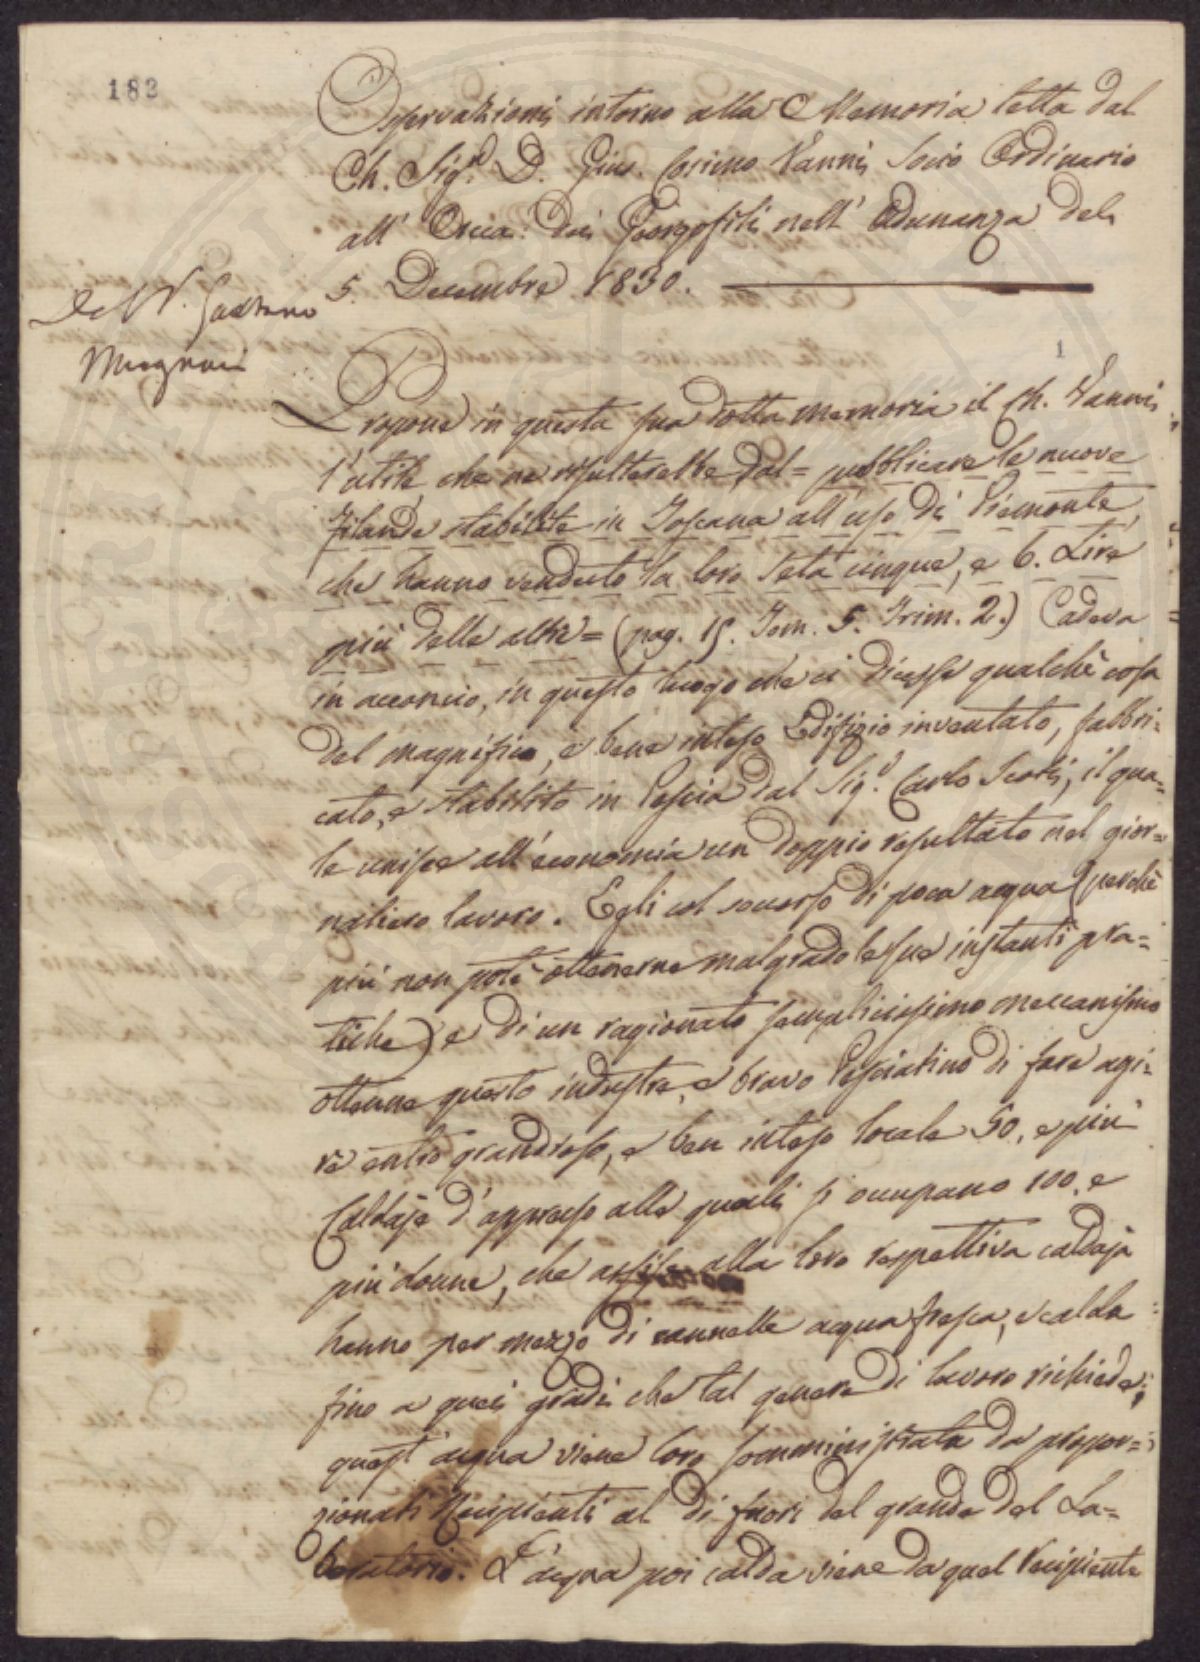 182
Osservazioni intorno alla Memoria letta dal
Ch. Sig.r D. Gius. Cosimo Vanni Socio Ordinario
all' dei Georgofili nell' Adunanza del
5. Decembre 1830.
Del Gaetano
1
Propone in questa sua dotta memoria il Ch. Vanni
l'utile che ne risulterebbe dal = pubblicare le nuove
Filande stabilite in Toscana all' uso di Piemonte,
che hanno venduto la loro seta cinque, e 6. Lire
più delle altre = (pag. 15. Tom. 5. Trim. 2.) Cadeva
in acconcio, in questo luogo che ci dicesse qualchè cosa
del magnifico, e bene inteso Edifizio inventato, fabbri-
cato, e stabilito in Pescia dal Sig.r Carlo Scoti, il qua-
le unisce all' economia un doppio resultato nel gior-
naliero lavoro. Egli col soccorso di poca acqua (perchè
più non potè ottenerne malgrado le sue instanti pra=
tiche) e di un ragionato semplicissimo meccanismo
ottenne questo industre, e bravo Pesciatino di fare agi-
re entro grandioso, e ben inteso locale 50, e più
Caldaje d'appresso alle quali si occupano 100, e
più donne, che assise alla loro respettiva caldaja
hanno per mezzo di cannelle acqua fresca, e calda
fino a quei gradi che tal genere di lavoro richiede;
quest' acqua viene loro somministrata da propor=
zionati Recipienti al di fuori del grande del La=
boratorio. L'acqua poi calda viene da quel Recipiente